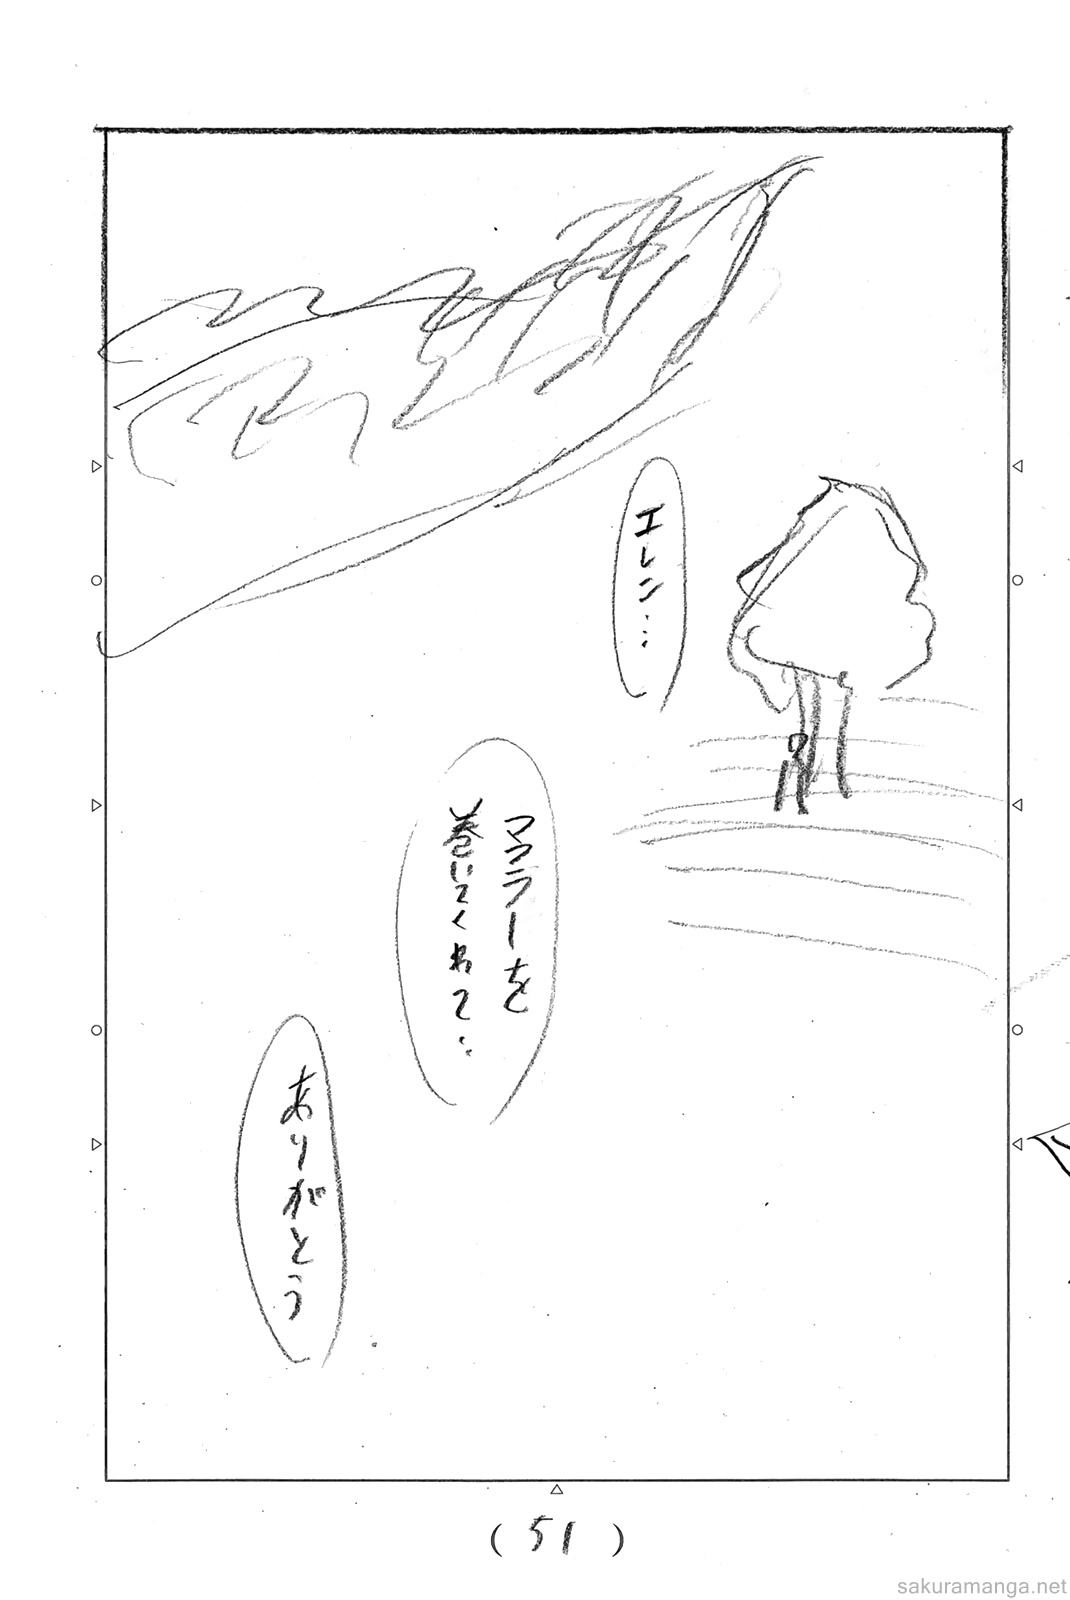 エレン…
マフラーを
巻いてくれて…
ありがとう
(51)
sakuramanga.net